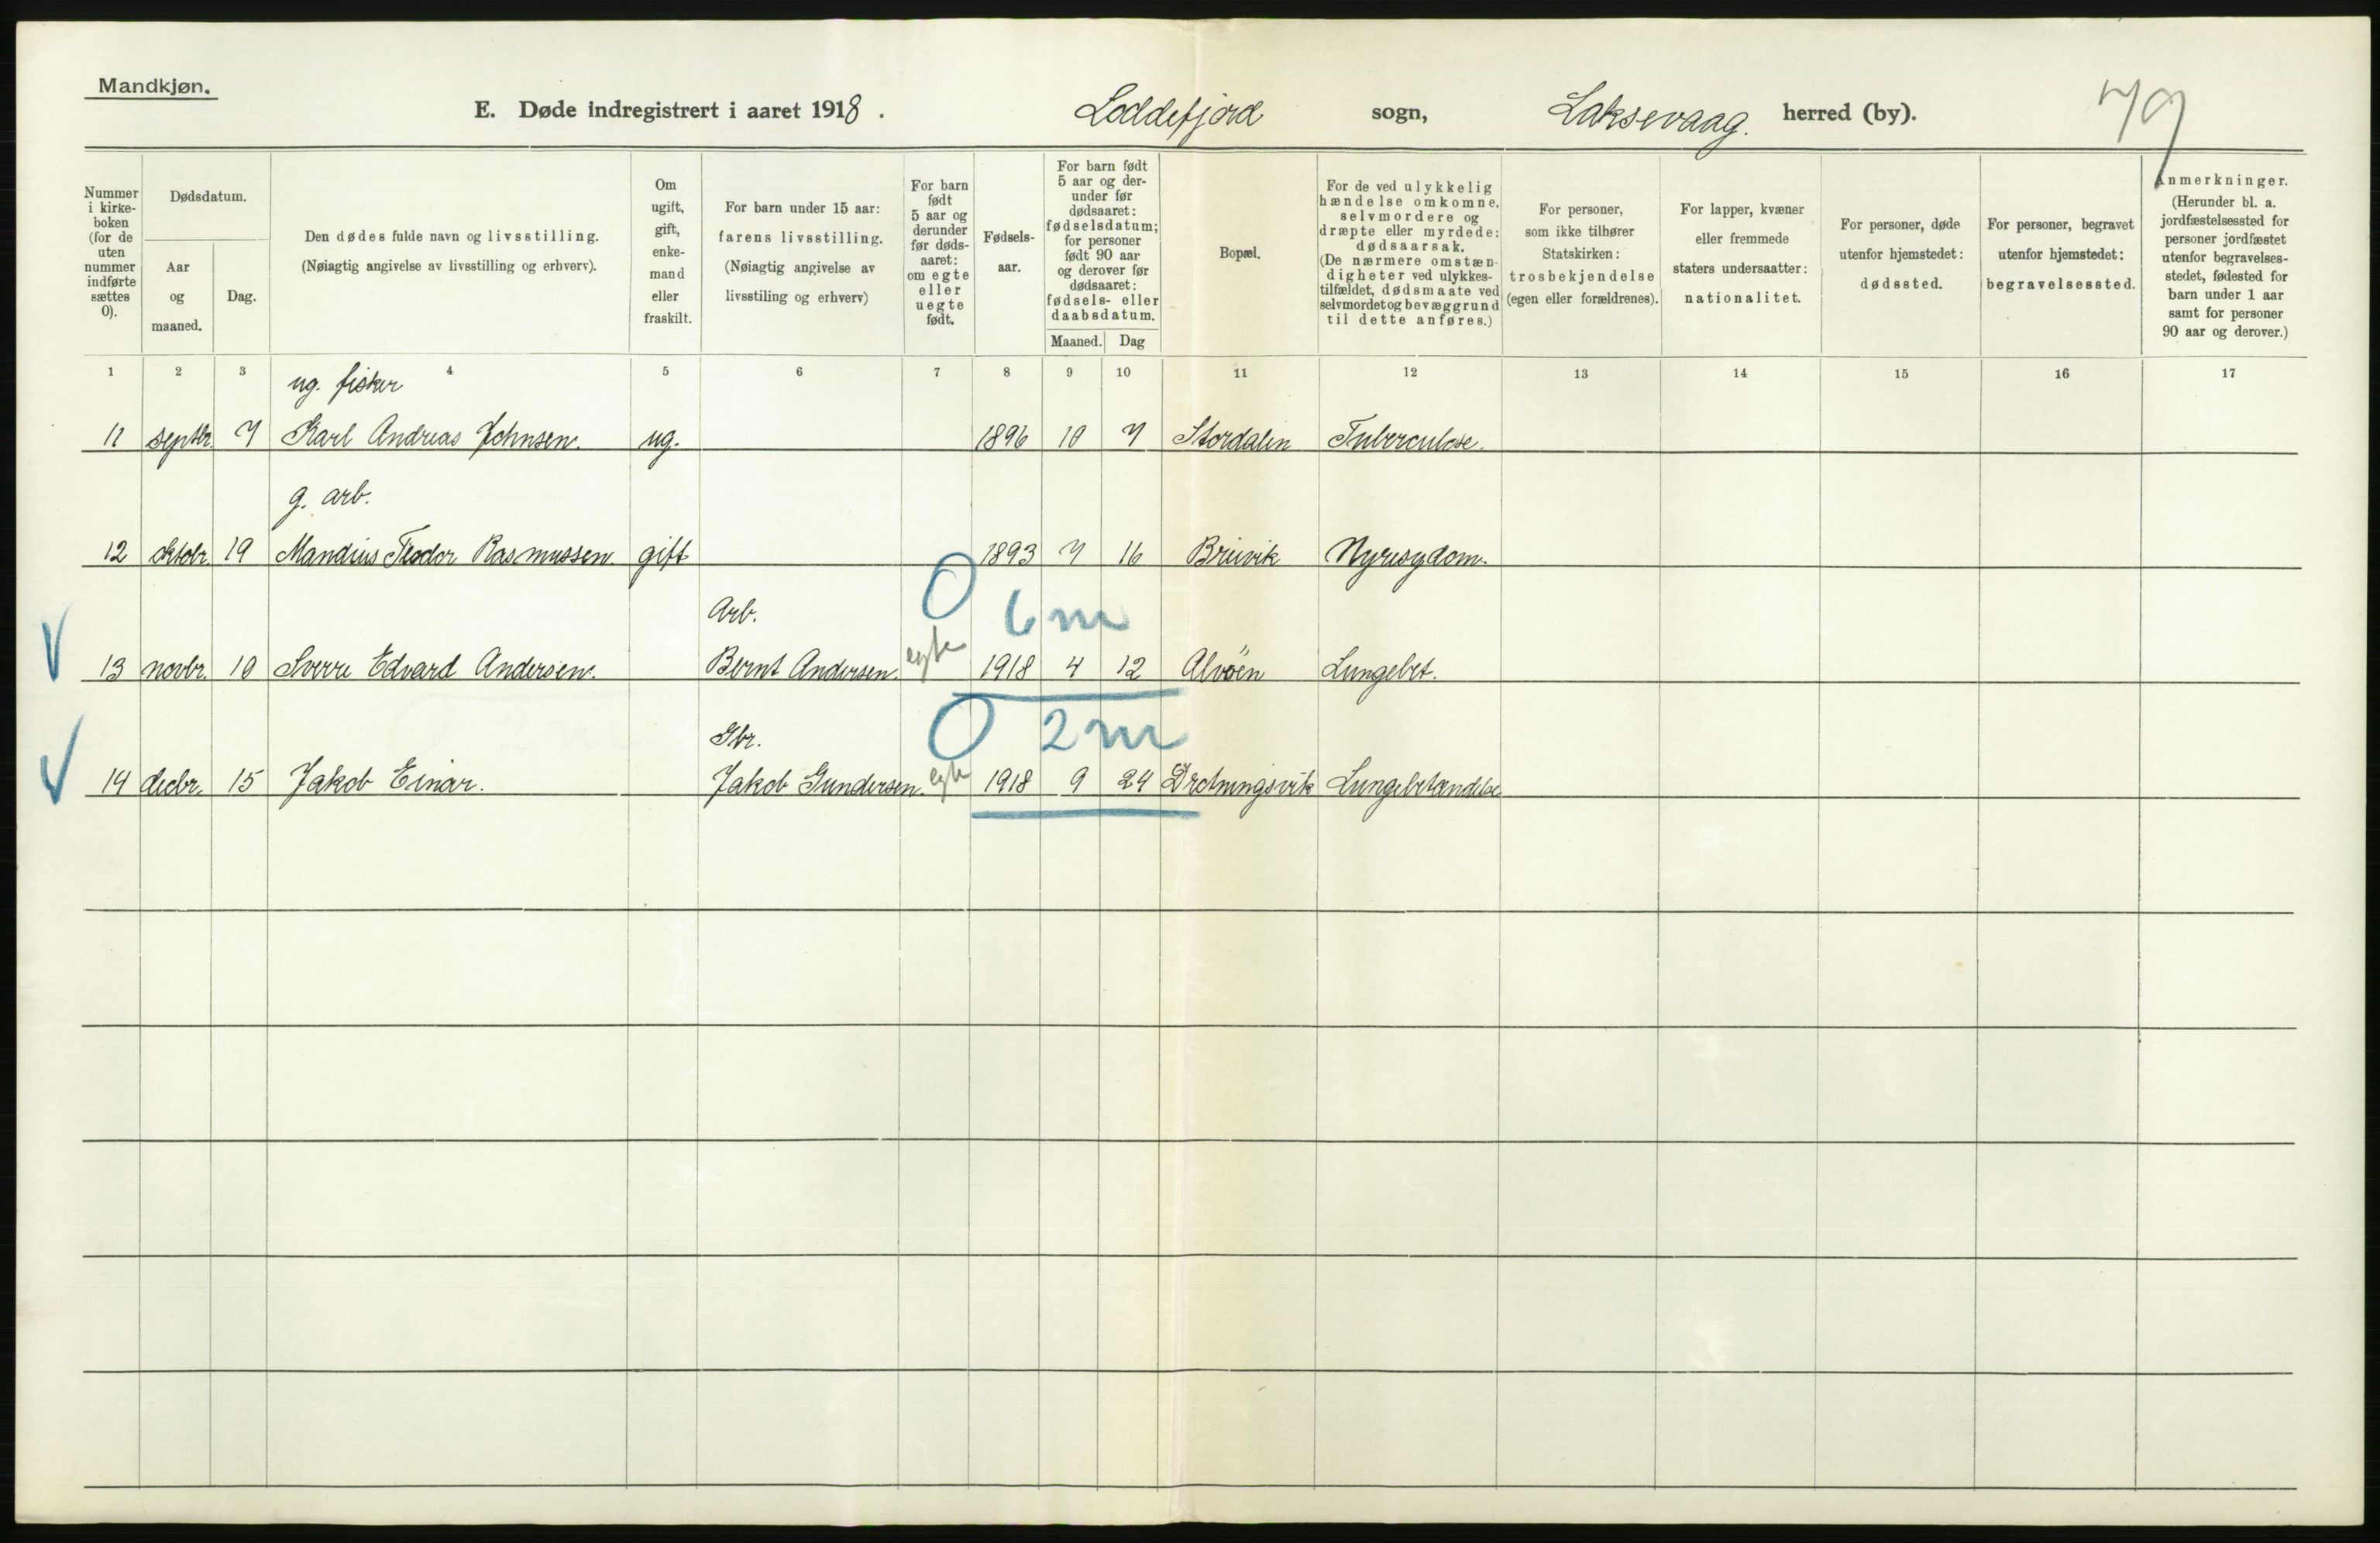 Mandkjøn.
E. Døde indregistrert i aaret 1918. Loddefjord sogn, Laksevaag. herred (by). 79
Nummer i kirke-boken (for de uten nummer indførte sættes 0).
Dødsdatum.
Aar og maaned.
Dag.
Den dødes fulde navn og livsstilling.
(Nøiagtig angivelse av livsstilling og erhverv).
Om ugift, gift, enke-mand eller fraskilt.
For barn under 15 aar: farens livsstilling.
(Nøiagtig angivelse av livsstiling og erhverv)
For barn født 5 aar og derunder før døds-aaret: om egte eller uegte født.
Fødsels-aar.
For barn født 5 aar og der-under før dødsaaret: fødselsdatum; for personer født 90 aar og derover før dødsaaret: fødsels- eller daabsdatum.
Maaned. Dag
Bopæl.
For de ved ulykkelig hændelse omkomne, selvmordere og dræpte eller myrdede: dødsaarsak.
(De nærmere omstæn-digheter ved ulykkes-tilfældet, dødsmaate ved selvmordet og bevæggrund til dette anføres.)
For personer, som ikke tilhører Statskirken: trosbekjendelse (egen eller forældrenes).
For lapper, kvæner eller fremmede staters undersaatter: nationalitet.
For personer, døde utenfor hjemstedet: dødssted.
For personer, begravet utenfor hjemstedet: begravelsessted.
Anmerkninger.
(Herunder bl. a. jordfæstelsessted for personer jordfæstet utenfor begravelses-stedet, fødested for barn under 1 aar samt for personer 90 aar og derover.)
1 2 3 4 5 6 7 8 9 10 11 12 13 14 15 16 17
ug. fisker
11 septbr. 7 Karl Andreas Johnsen. ug. 1896 10 7 Stordalen Tuberculose.
g. arb.
12 oktobr. 19 Mandius Teodor Rasmussen. gift 1893 7 16 Breivik Nyresygdom.
Arb. 0 6 m
V 13 novbr. 10 Sverre Edvard Andersen. Bernt Andersen. egte 1918 4 12 Alvøen Lungebet.
Gbr. 0 2 m
V 14 decbr. 15 Jakob Einar. Jakob Gundersen. egte 1918 9 24 Drotningsvik Lungebetændelse